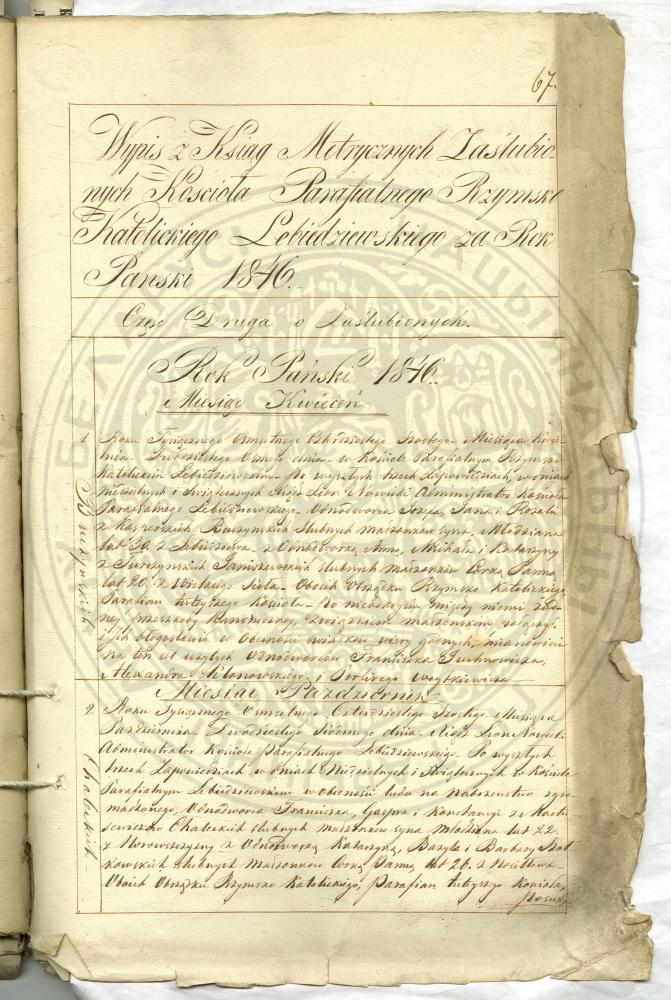 67.
Wypis z Ksiąg Metrycznych Zaślubio-
nych Kościoła Parafialnego Rzymsko
Katolickiego Lebiedziewskiego za Rok
Pański 1846.
Część Druga o Zaślubionych.
Rok Pański 1846.
Miesiąc Kwiecień
1. Roku Tysiącznego Osmsetnego Czterdziestego Szostego Miesiąca Kwie-
tnia Dwudziestego Osmego dnia w Kościele Parafialnym Rzymsko
Katolickim Lebiedziewskim po wyszłych trzech Zapowiedziach, w dniach
niedzielnych i Swiątecznych Xiądz Leon Nowicki Administrator Kościoła
Parafialnego Lebiedziewskiego Odnodworca Jozefa, Jana i Rozalii
z Buczynskich Slubnych małżonkow Syna, Młodziana
lat 30. z Lebiedziewa z Odnodworką Anną, Michała i Katarzyny
z Janiszewskich slubnych małżonkow Corką Panną
lat 20. z Wielkiego Sioła Oboich Obrządku Rzymsko Katolickiego
Parafian tutejszego Kościoła po nieodkrytey między niemi żad-
ney przeszkody Kanoniczney, związkiem małżenskim połączył
i Ich błogosławił w obecności swiadkow wiary godnych, mianowicie
na ten akt użytych Odnodworcow Franciszka Juchnowicza,
Alexandra Klonowskiego i Porfirego Woytkiewicza
Buczynskich
Miesiąc Pazdziernik
2. Roku Tysiącznego Osmsetnego Czterdziestego Szostego Miesiąca
Pazdziernika Dwudziestego Siodmego dnia Xiądz Leon Nowicki
Administrator Kościoła Parafialnego Lebiedziewskiego Po wyszłych
trzech Zapowiedziach w dniach Niedzielnych i Swiątecznych w Kościele
Parafialnym Lebiedziewskim w obecności ludu na Nabożenstwo zgro-
madzonego, Odnodworca Franciszka, Gaspra i Konstancyi z
Chaleckich slubnych małżonkow syna młodziana lat 22.
z Odnodworką Katarzyną, Bazyla i Barbary
slubnych małżonkow Corką Panną lat 20. z
Oboich Obrządku Rzymsko Katolickiego, Parafian tutejszego Kościoła,
Chaleckich